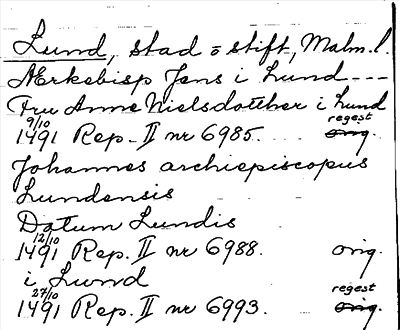 Lund, stad o stift, Malm. l.
Ærkebisp Jens i Lund ---
Fru Anne Nielsdotther i Lund
9/10 regest
1491 Rep. II nr 6985. orig.
Johannes archiepiscopus
Lundensis
Datum Lundis
12/10
1491 Rep. II nr 6988. orig.
i Lund
27/10 regest
1491 Rep. II nr 6993. orig.